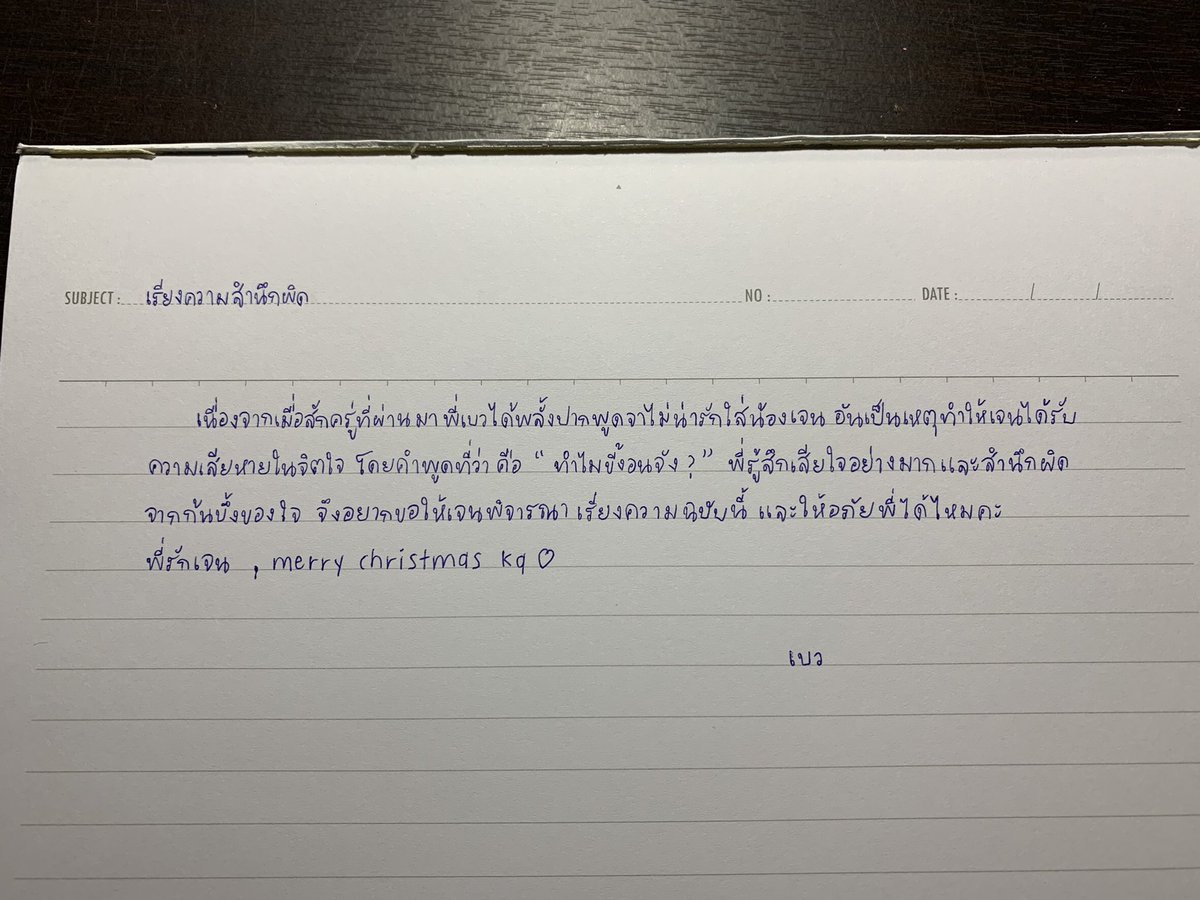 SUBJECT : เรียงความสำนึกผิด NO : DATE : / /
เนื่องจากเมื่อสักครู่ที่ผ่านมา พี่เบวได้พลั้งปากพูดจาไม่น่ารักใส่น้องเจน อันเป็นเหตุทำให้เจนได้รับ
ความเสียหายในจิตใจ โดยคำพูดที่ว่า คือ “ ทำไมขี้งอนจัง ? ” พี่รู้สึกเสียใจอย่างมากและสำนึกผิด
จากก้นบึ้งของใจ จึงอยากขอให้เจนพิจารณา เรียงความฉบับนี้ และให้อภัยพี่ได้ไหมคะ
พี่รักเจน , merry christmas ka ♡
เบว